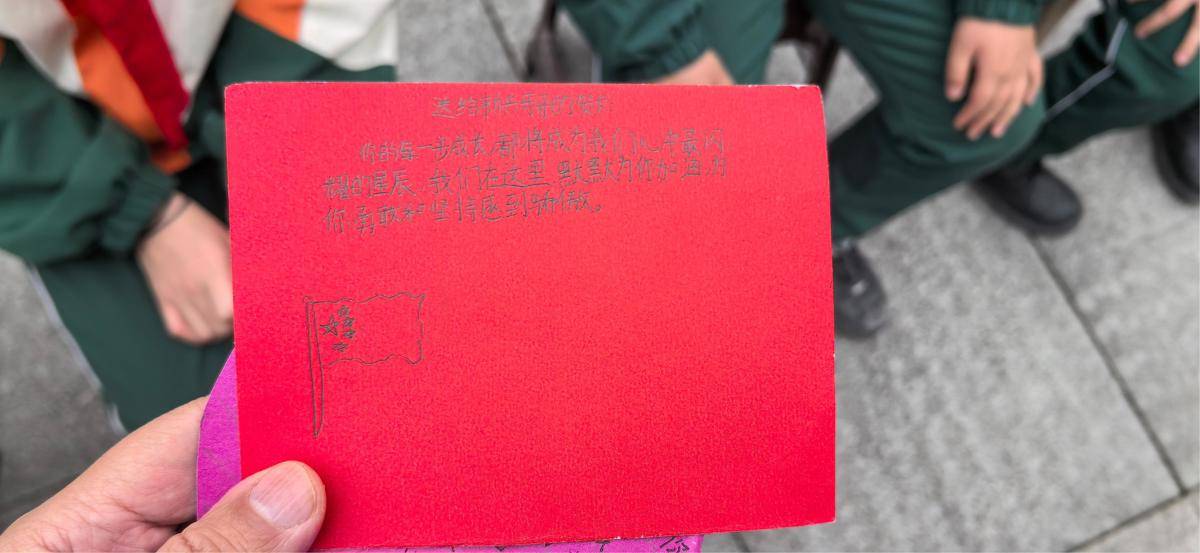 送给补天哥哥的贺卡
你的每一步成长,都将成为我们心中最闪
耀的星辰。我们在这里 默默为你加油,为
你勇敢和坚持感到骄傲。